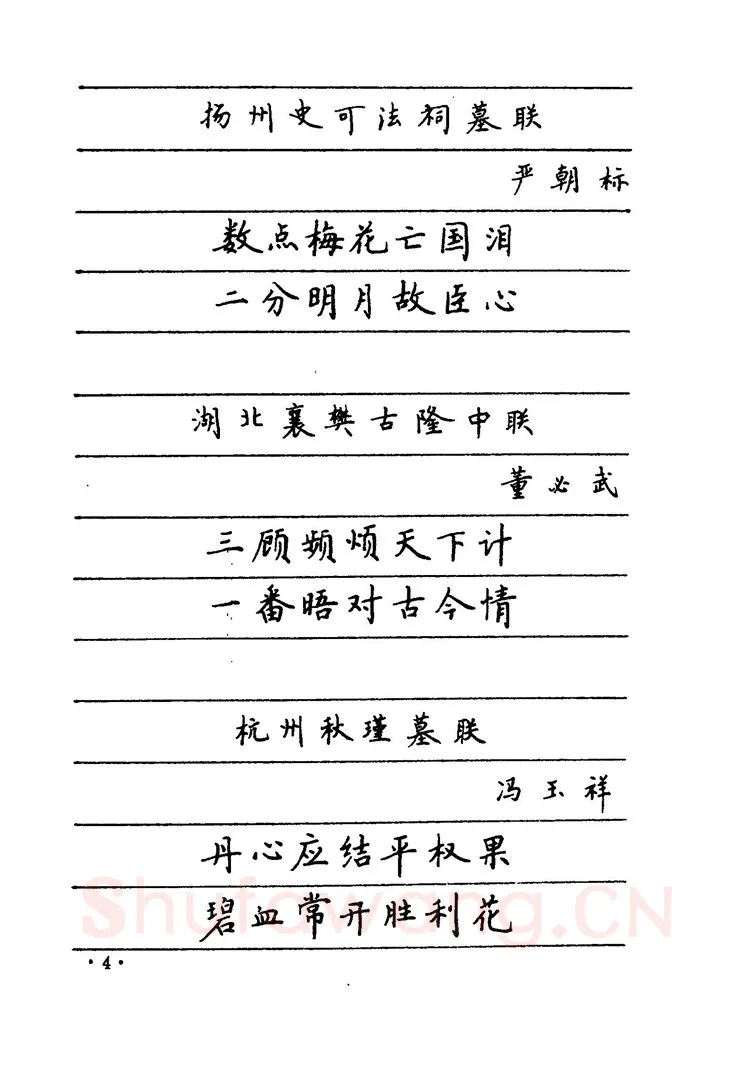 扬州史可法祠墓联
严朝标
数点梅花亡国泪
二分明月故臣心
湖北襄樊古隆中联
董必武
三顾频烦天下计
一番晤对古今情
杭州秋瑾墓联
冯玉祥
丹心应结平权果
碧血常开胜利花
Shufawang.CN
·4·